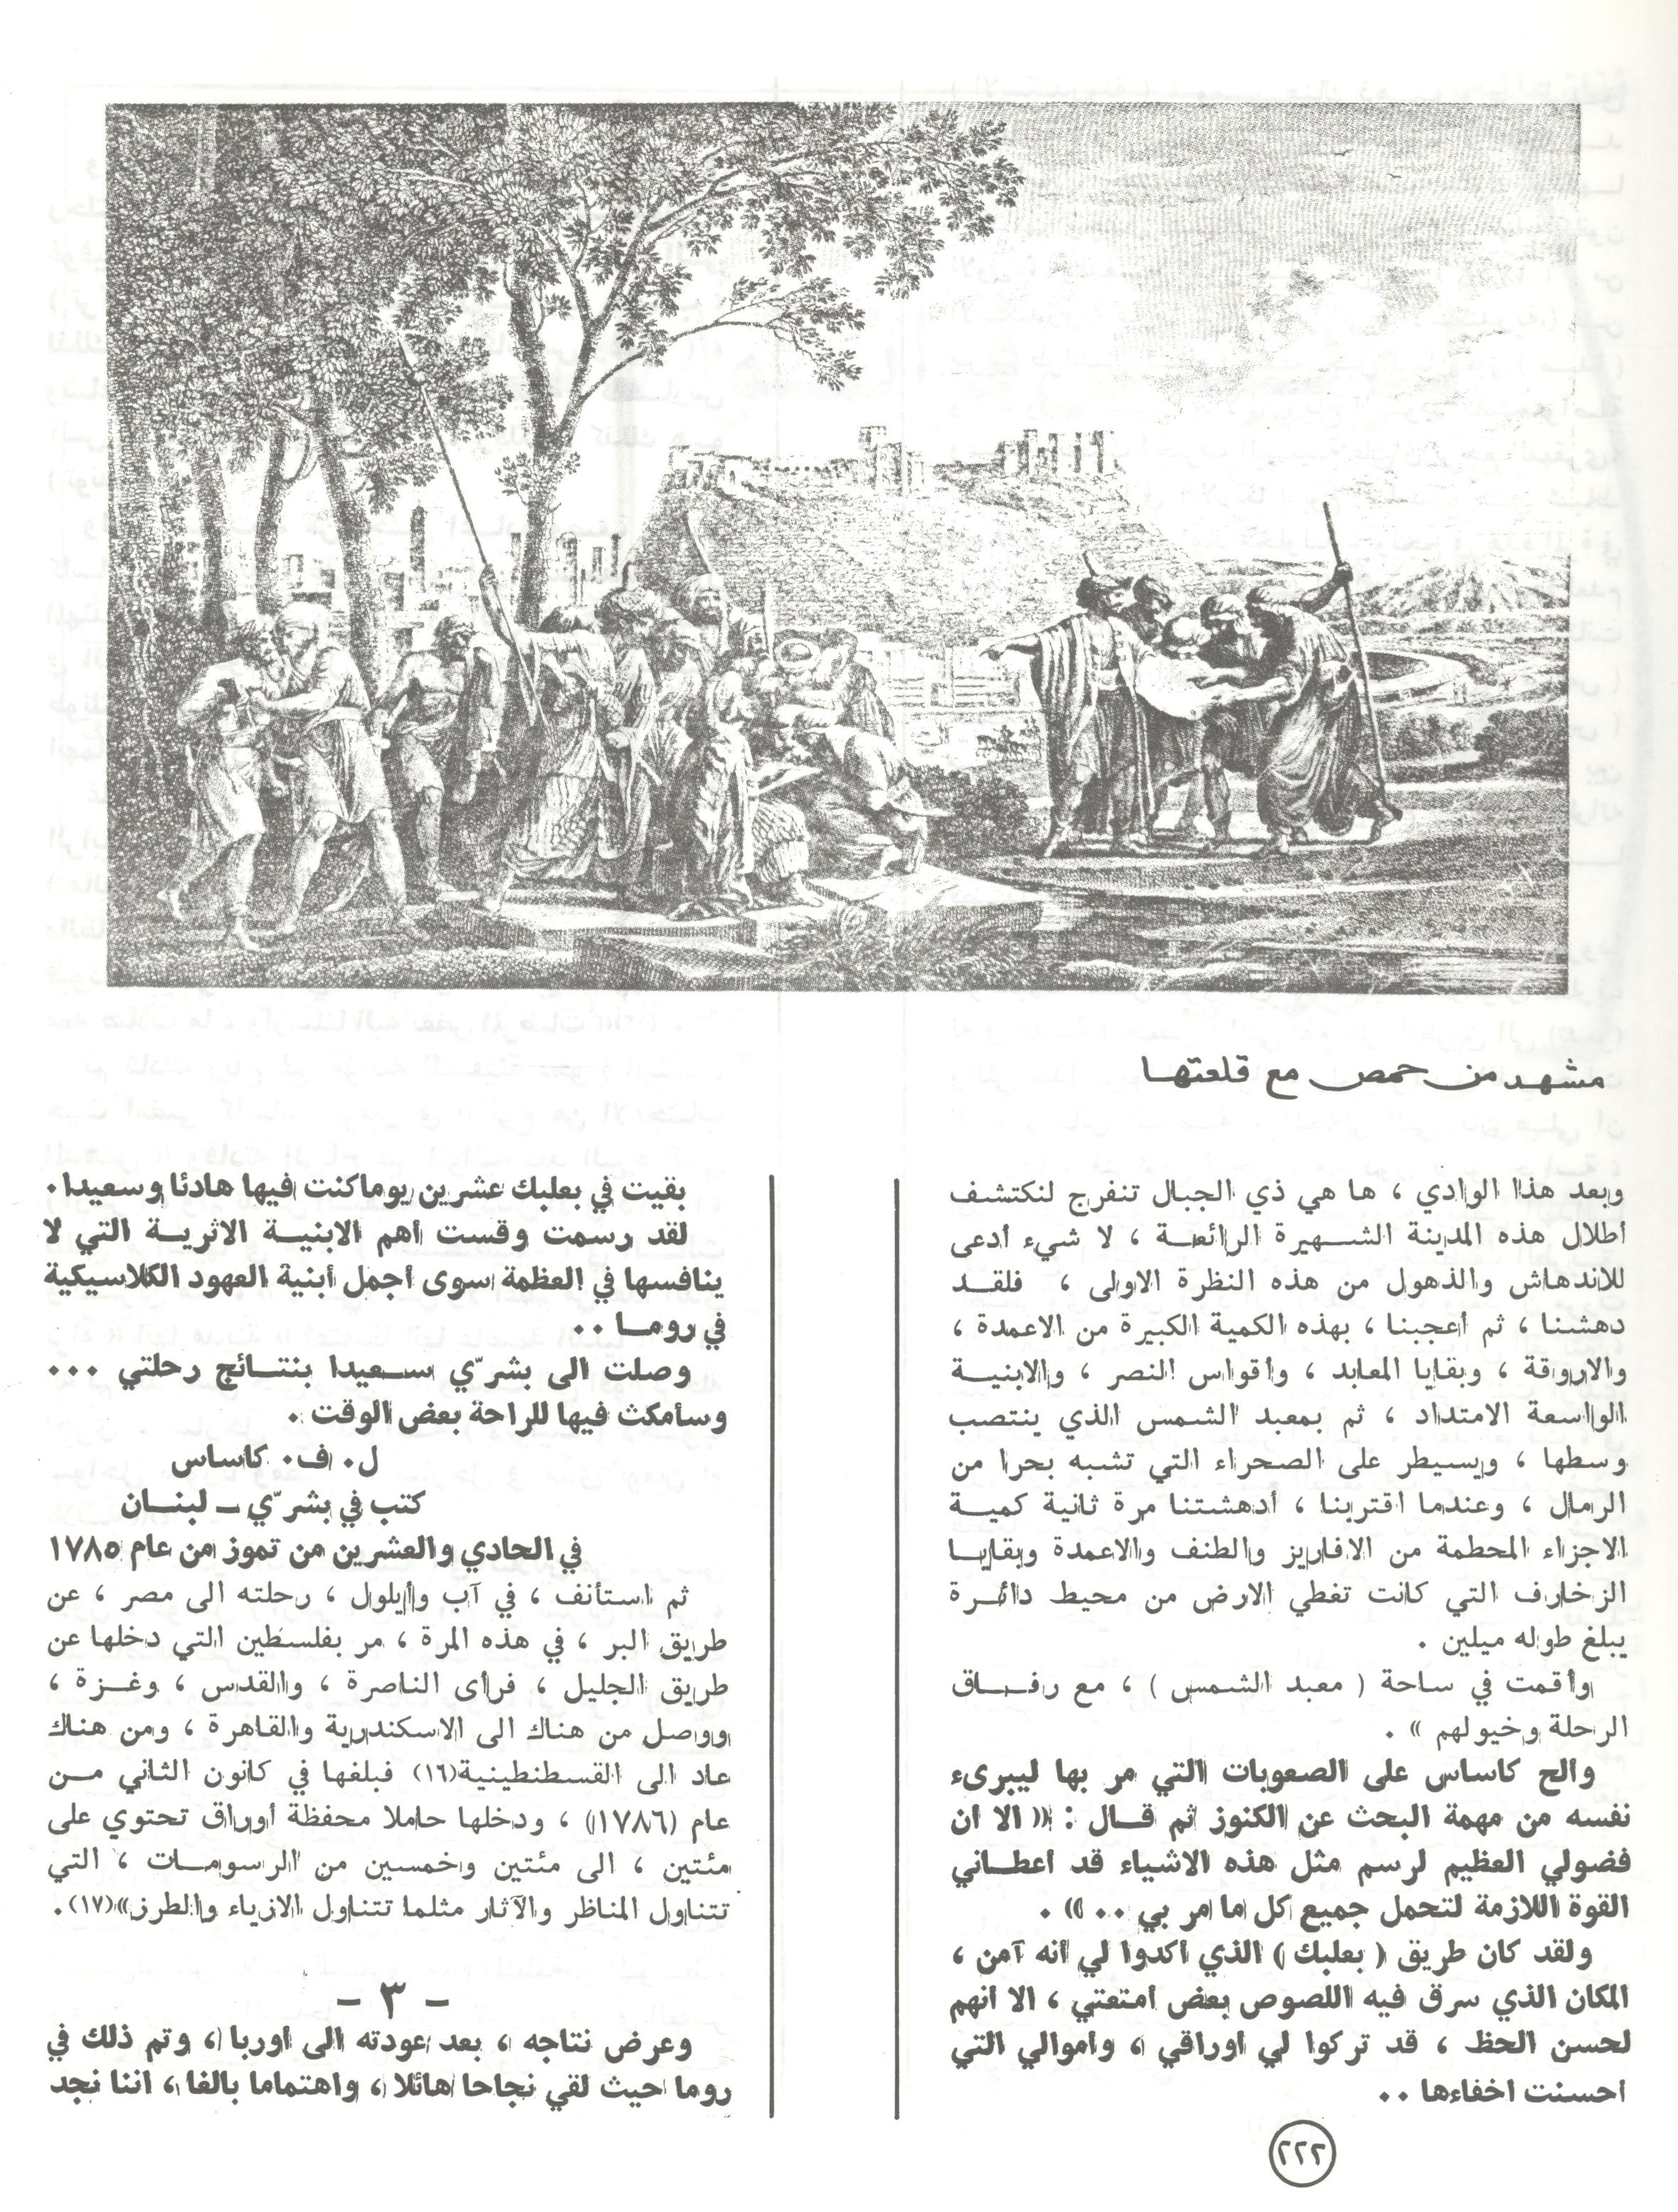 مشهد من حمص مع قلعتها
وبعد هذا الوادي ، ها هي ذي الجبال تنفرج لنكتشف
أطلال هذه المدينة الشهيرة الرائعة ، لا شيء أدعى
للاندهاش والذهول من هذه النظرة الاولى ، فلقد
دهشنا ، ثم أعجبنا ، بهذه الكمية الكبيرة من الاعمدة ،
والاروقة ، وبقايا المعابد ، وأقواس النصر ، والابنية
الواسعة الامتداد ، ثم بمعبد الشمس الذي ينتصب
وسطها ، ويسيطر على الصحراء التي تشبه بحرا من
الرمال ، وعندما اقتربنا ، أدهشتنا مرة ثانية كمية
الاجزاء المحطمة من الافاريز والطنف والاعمدة وبقايا
الزخارف التي كانت تغطي الارض من محيط دائرة
يبلغ طوله ميلين .
وأقمت في ساحة ( معبد الشمس ) ، مع رفاق
الرحلة وخيولهم » .
والح كاساس على الصعوبات التي مر بها ليبرىء
نفسه من مهمة البحث عن الكنوز ثم قال : « الا ان
فضولي العظيم لرسم مثل هذه الاشياء قد أعطاني
القوة اللازمة لتحمل جميع كل ما مر بي .. » .
ولقد كان طريق ( بعلبك ) الذي أكدوا لي أنه آمن ،
المكان الذي سرق فيه اللصوص بعض امتعتي ، الا انهم
لحسن الحظ ، قد تركوا لي اوراقي ، واموالي التي
احسنت اخفاءها ..
بقيت في بعلبك عشرين يوما كنت فيها هادئا وسعيدا.
لقد رسمت وقست أهم الابنية الاثرية التي لا
ينافسها في العظمة سوى أجمل أبنية العهود الكلاسيكية
في روما ..
وصلت الى بشرّي سعيدا بنتائج رحلتي ...
وسأمكث فيها للراحة بعض الوقت .
ل. ف. كاساس
كتب في بشرّي ــ لبنان
في الحادي والعشرين من تموز من عام ١٧٨٥
ثم استأنف ، في آب وأيلول ، رحلته الى مصر ، عن
طريق البر ، في هذه المرة ، مر بفلسطين التي دخلها عن
طريق الجليل ، فرأى الناصرة ، والقدس ، وغزة ،
ووصل من هناك الى الاسكندرية والقاهرة ، ومن هناك
عاد الى القسطنطينية(١٦) فبلغها في كانون الثاني من
عام (١٧٨٦) ، ودخلها حاملا محفظة أوراق تحتوي على
مئتين ، الى مئتين وخمسين من الرسومات ، التي
تتناول المناظر والآثار مثلما تتناول الازياء والطرز»(١٧).
- ٣ -
وعرض نتاجه ، بعد عودته الى اوربا ، وتم ذلك في
روما حيث لقي نجاحا هائلا ، واهتماما بالغا ، اننا نجد
٢٢٢